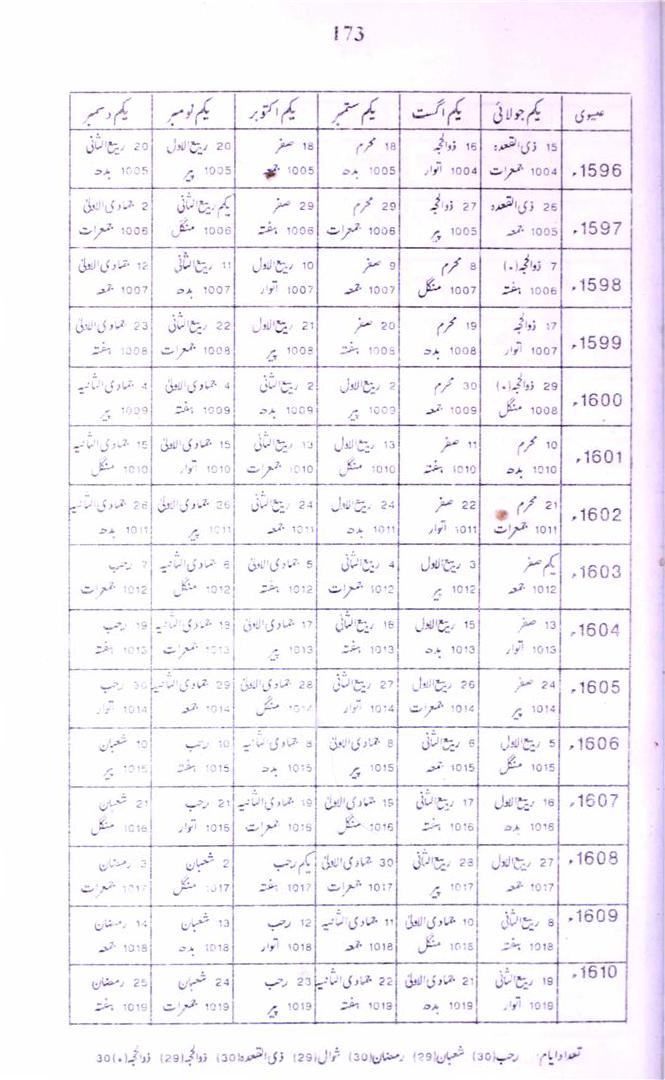 173
عیسوی یکم جولائی یکم اگست یکم ستمبر یکم اکتوبر یکم نومبر یکم دسمبر
1596ء 15 ذی القعدہ 16 ذوالحجہ 18 محرم 18 صفر 20 ربیع الاول 20 ربیع الثانی
1004 جمعرات 1004 اتوار 1005 بدھ 1005 جمعہ 1005 پیر 1005 بدھ
1597ء 26 ذی القعدہ 27 ذوالحجہ 29 محرم 29 صفر یکم ربیع الثانی 2 جمادی الاولیٰ
1005 جمعہ 1005 پیر 1006 جمعرات 1006 ہفتہ 1006 منگل 1006 جمعرات
1598ء 7 ذوالحجہ(٠) 8 محرم 9 صفر 10 ربیع الاول 11 ربیع الثانی 12 جمادی الاولیٰ
1006 ہفتہ 1007 منگل 1007 جمعہ 1007 اتوار 1007 بدھ 1007 جمعہ
1599ء 17 ذوالحجہ 19 محرم 20 صفر 21 ربیع الاول 22 ربیع الثانی 23 جمادی الاولیٰ
1007 اتوار 1008 بدھ 1008 ہفتہ 1008 پیر 1008 جمعرات 1008 ہفتہ
1600ء 29 ذوالحجہ(٠) 30 محرم 2 ربیع الاول 2 ربیع الثانی 4 جمادی الاولیٰ 4 جمادی الثانیہ
1008 منگل 1009 جمعہ 1009 پیر 1009 بدھ 1009 ہفتہ 1009 پیر
1601ء 10 محرم 11 صفر 13 ربیع الاول 13 ربیع الثانی 15 جمادی الاولیٰ 15 جمادی الثانیہ
1010 بدھ 1010 ہفتہ 1010 منگل 1010 جمعرات 1010 اتوار 1010 منگل
1602ء 21 محرم 22 صفر 24 ربیع الاول 24 ربیع الثانی 26 جمادی الاولیٰ 26 جمادی الثانیہ
1011 جمعرات 1011 اتوار 1011 بدھ 1011 جمعہ 1011 پیر 1011 بدھ
1603ء یکم صفر 3 ربیع الاول 4 ربیع الثانی 5 جمادی الاولیٰ 6 جمادی الثانیہ 7 رجب
1012 جمعہ 1012 پیر 1012 جمعرات 1012 ہفتہ 1012 منگل 1012 جمعرات
1604ء 13 صفر 15 ربیع الاول 16 ربیع الثانی 17 جمادی الاولیٰ 19 جمادی الثانیہ 19 رجب
1013 اتوار 1013 بدھ 1013 ہفتہ 1013 پیر 1013 جمعرات 1013 ہفتہ
1605ء 24 صفر 26 ربیع الاول 27 ربیع الثانی 28 جمادی الاولیٰ 29 جمادی الثانیہ 30 رجب
1014 پیر 1014 جمعرات 1014 اتوار 1014 منگل 1014 جمعہ 1014 اتوار
1606ء 5 ربیع الاول 6 ربیع الثانی 8 جمادی الاولیٰ 8 جمادی الثانیہ 10 رجب 10 شعبان
1015 منگل 1015 جمعہ 1015 پیر 1015 بدھ 1015 ہفتہ 1015 پیر
1607ء 16 ربیع الاول 17 ربیع الثانی 19 جمادی الاولیٰ 19 جمادی الثانیہ 21 رجب 21 شعبان
1016 بدھ 1016 ہفتہ 1016 منگل 1016 جمعرات 1016 اتوار 1016 منگل
1608ء 27 ربیع الاول 28 ربیع الثانی 30 جمادی الاولیٰ یکم رجب 2 شعبان 3 رمضان
1017 جمعہ 1017 پیر 1017 جمعرات 1017 ہفتہ 1017 منگل 1017 جمعرات
1609ء 8 ربیع الثانی 10 جمادی الاولیٰ 11 جمادی الثانیہ 12 رجب 13 شعبان 14 رمضان
1018 ہفتہ 1018 منگل 1018 جمعہ 1018 اتوار 1018 بدھ 1018 جمعہ
1610ء 19 ربیع الثانی 21 جمادی الاولیٰ 22 جمادی الثانیہ 23 رجب 24 شعبان 25 رمضان
1019 اتوار 1019 بدھ 1019 ہفتہ 1019 پیر 1019 جمعرات 1019 ہفتہ
تعداد ایام: رجب(30) شعبان(29) رمضان(30) شوال(29) ذی القعدہ(30) ذوالحجہ(29) ذوالحجہ(٠)30